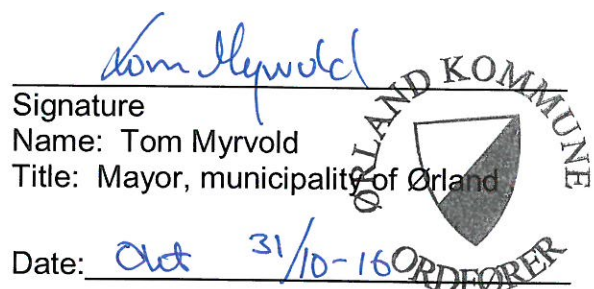 Tom Myrvold
Signature
Name: Tom Myrvold
Title: Mayor, municipality of Ørland
Date: 31/10-16
ØRLAND KOMMUNE
ORDFØRER